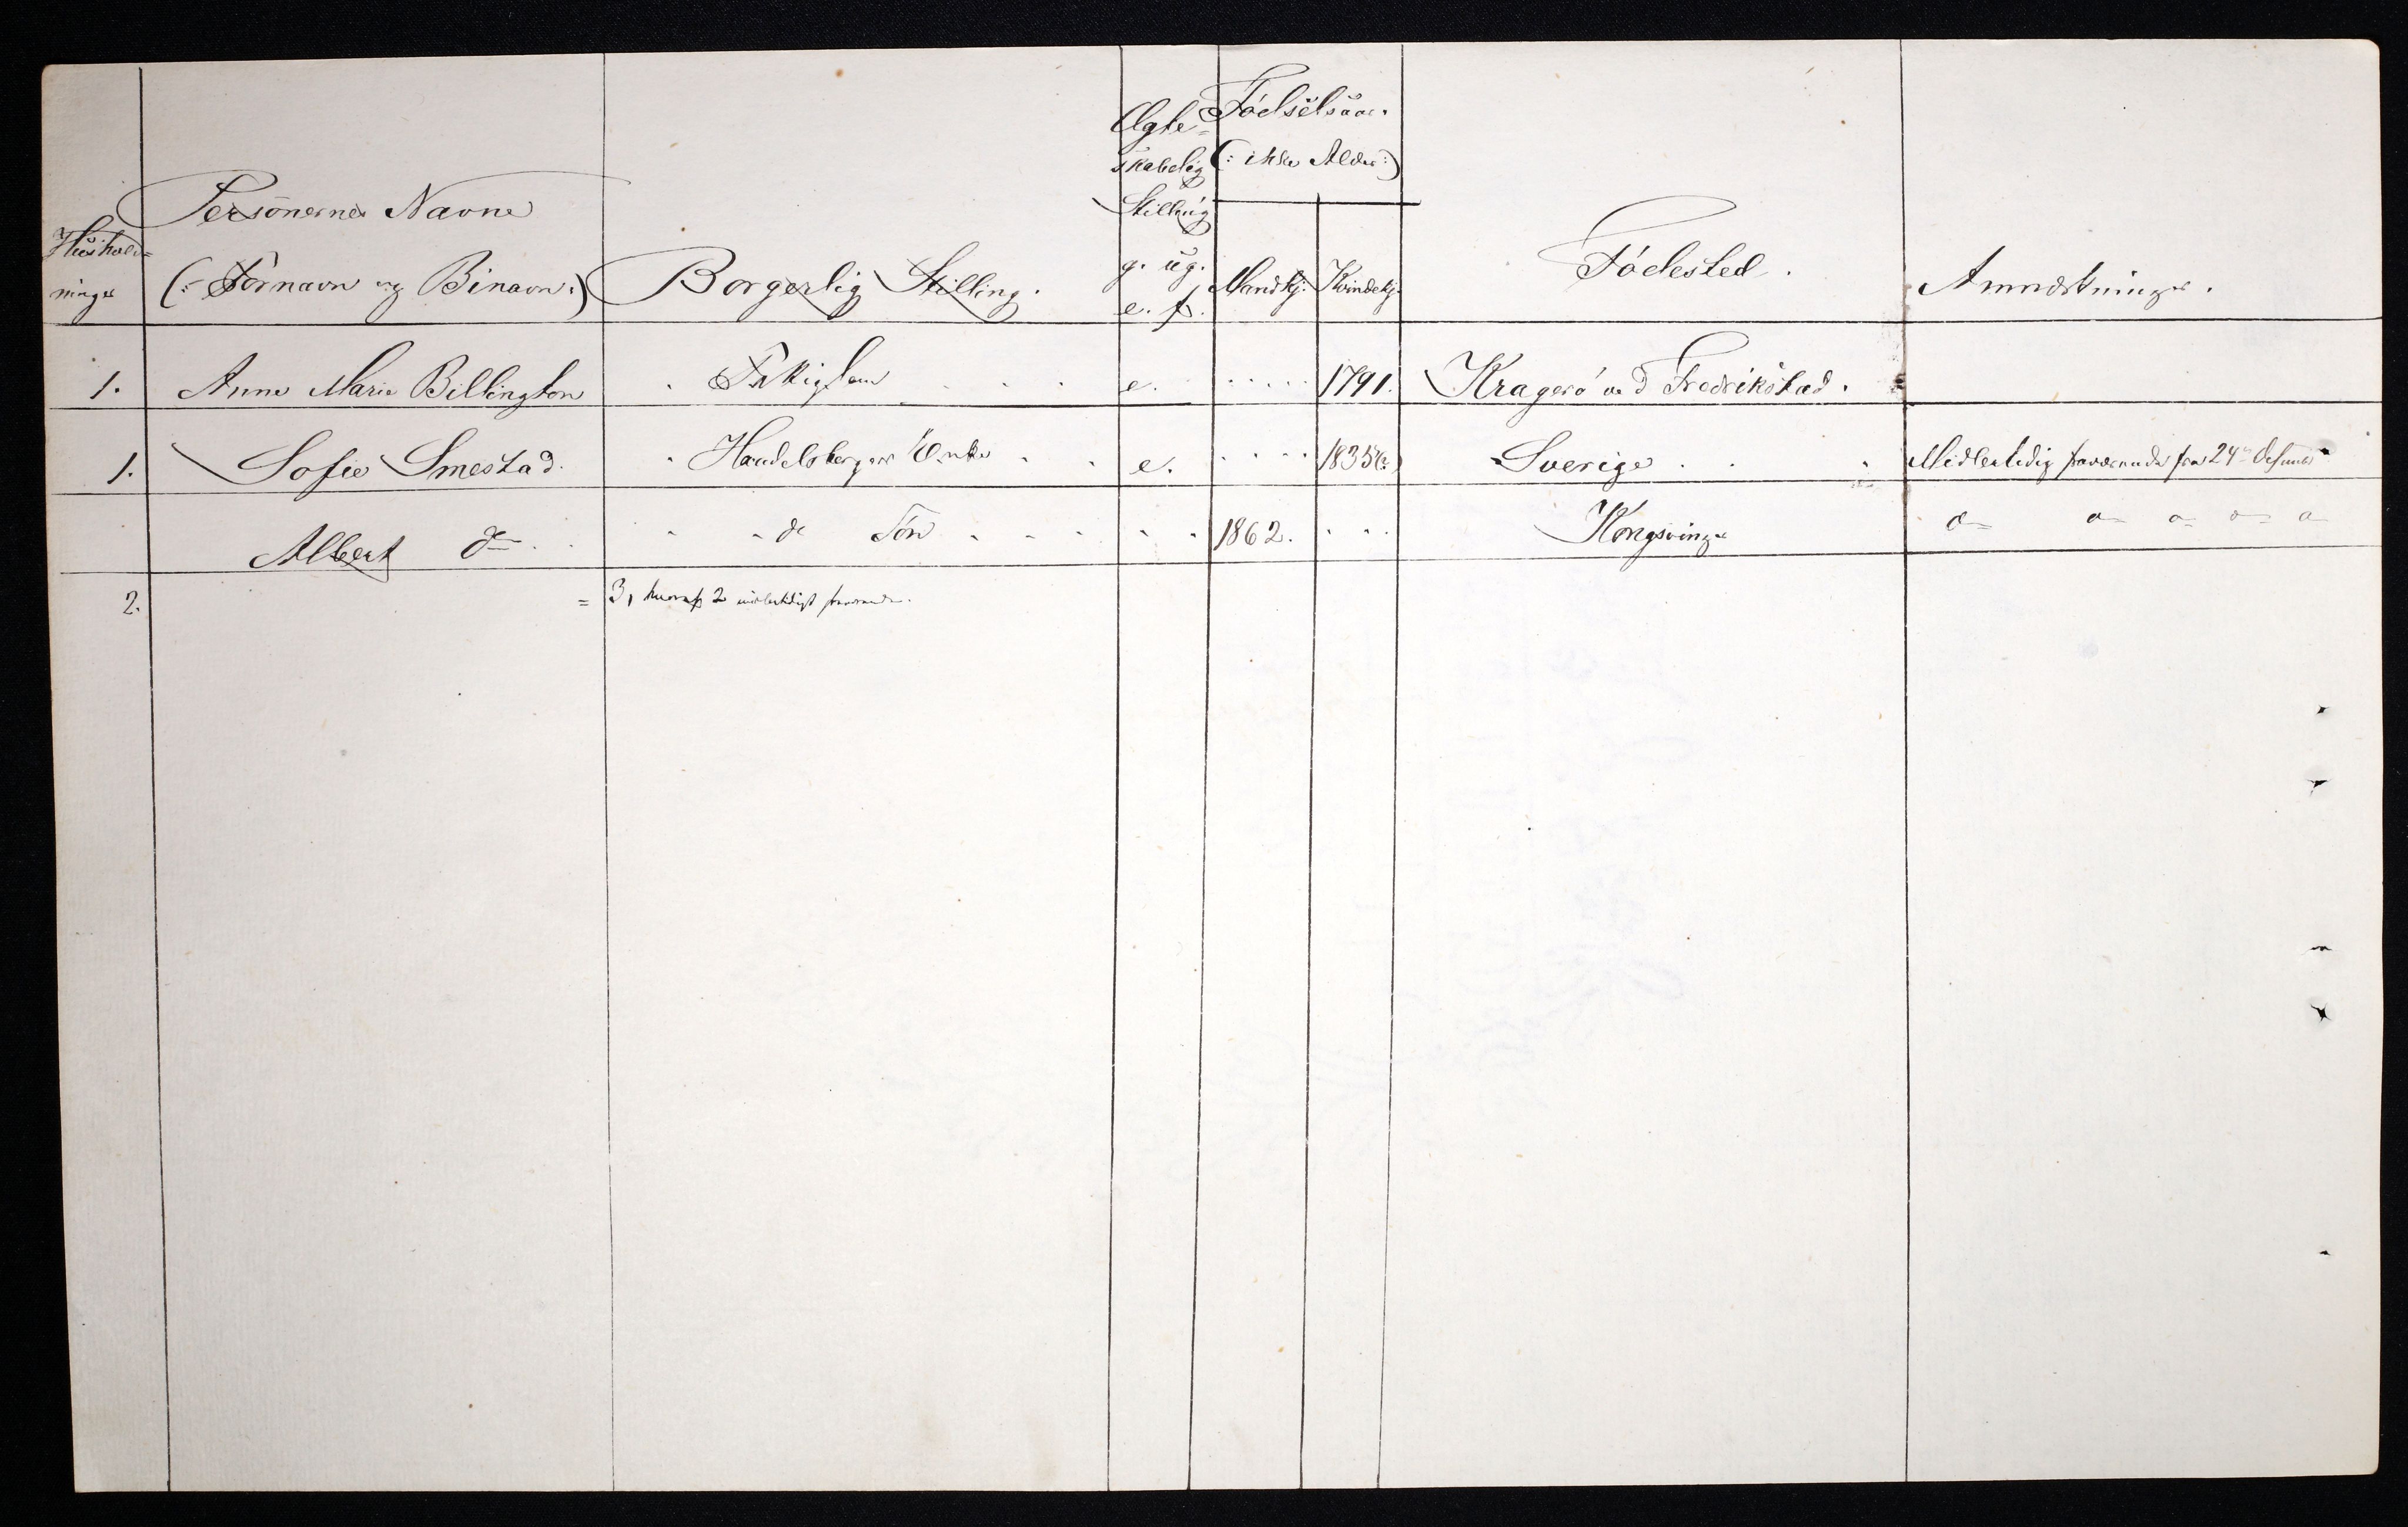 Ægte= Fødselsaar.
skabelig (: ikke Alder:)
Personernes Navne Stilling
Hushold=
ninger (: Fornavn og Binavn:) Borgerlig Stilling. g. ug. Mandkj. Kvindekj. Fødested. Anmærkninger.
e. f.
1. Anne Marie Billington e. 1791. Kragerø ved Fredrikstad.
1. Sofie Smestad. Handelsborger Enke e. 1835 Sverige Midlertidig fraværende fra 24de Desember
Albert do do Søn 1862. Kongsvinger do do do do do
2. = 3, hvoraf 2 midlertidigt fraværende.